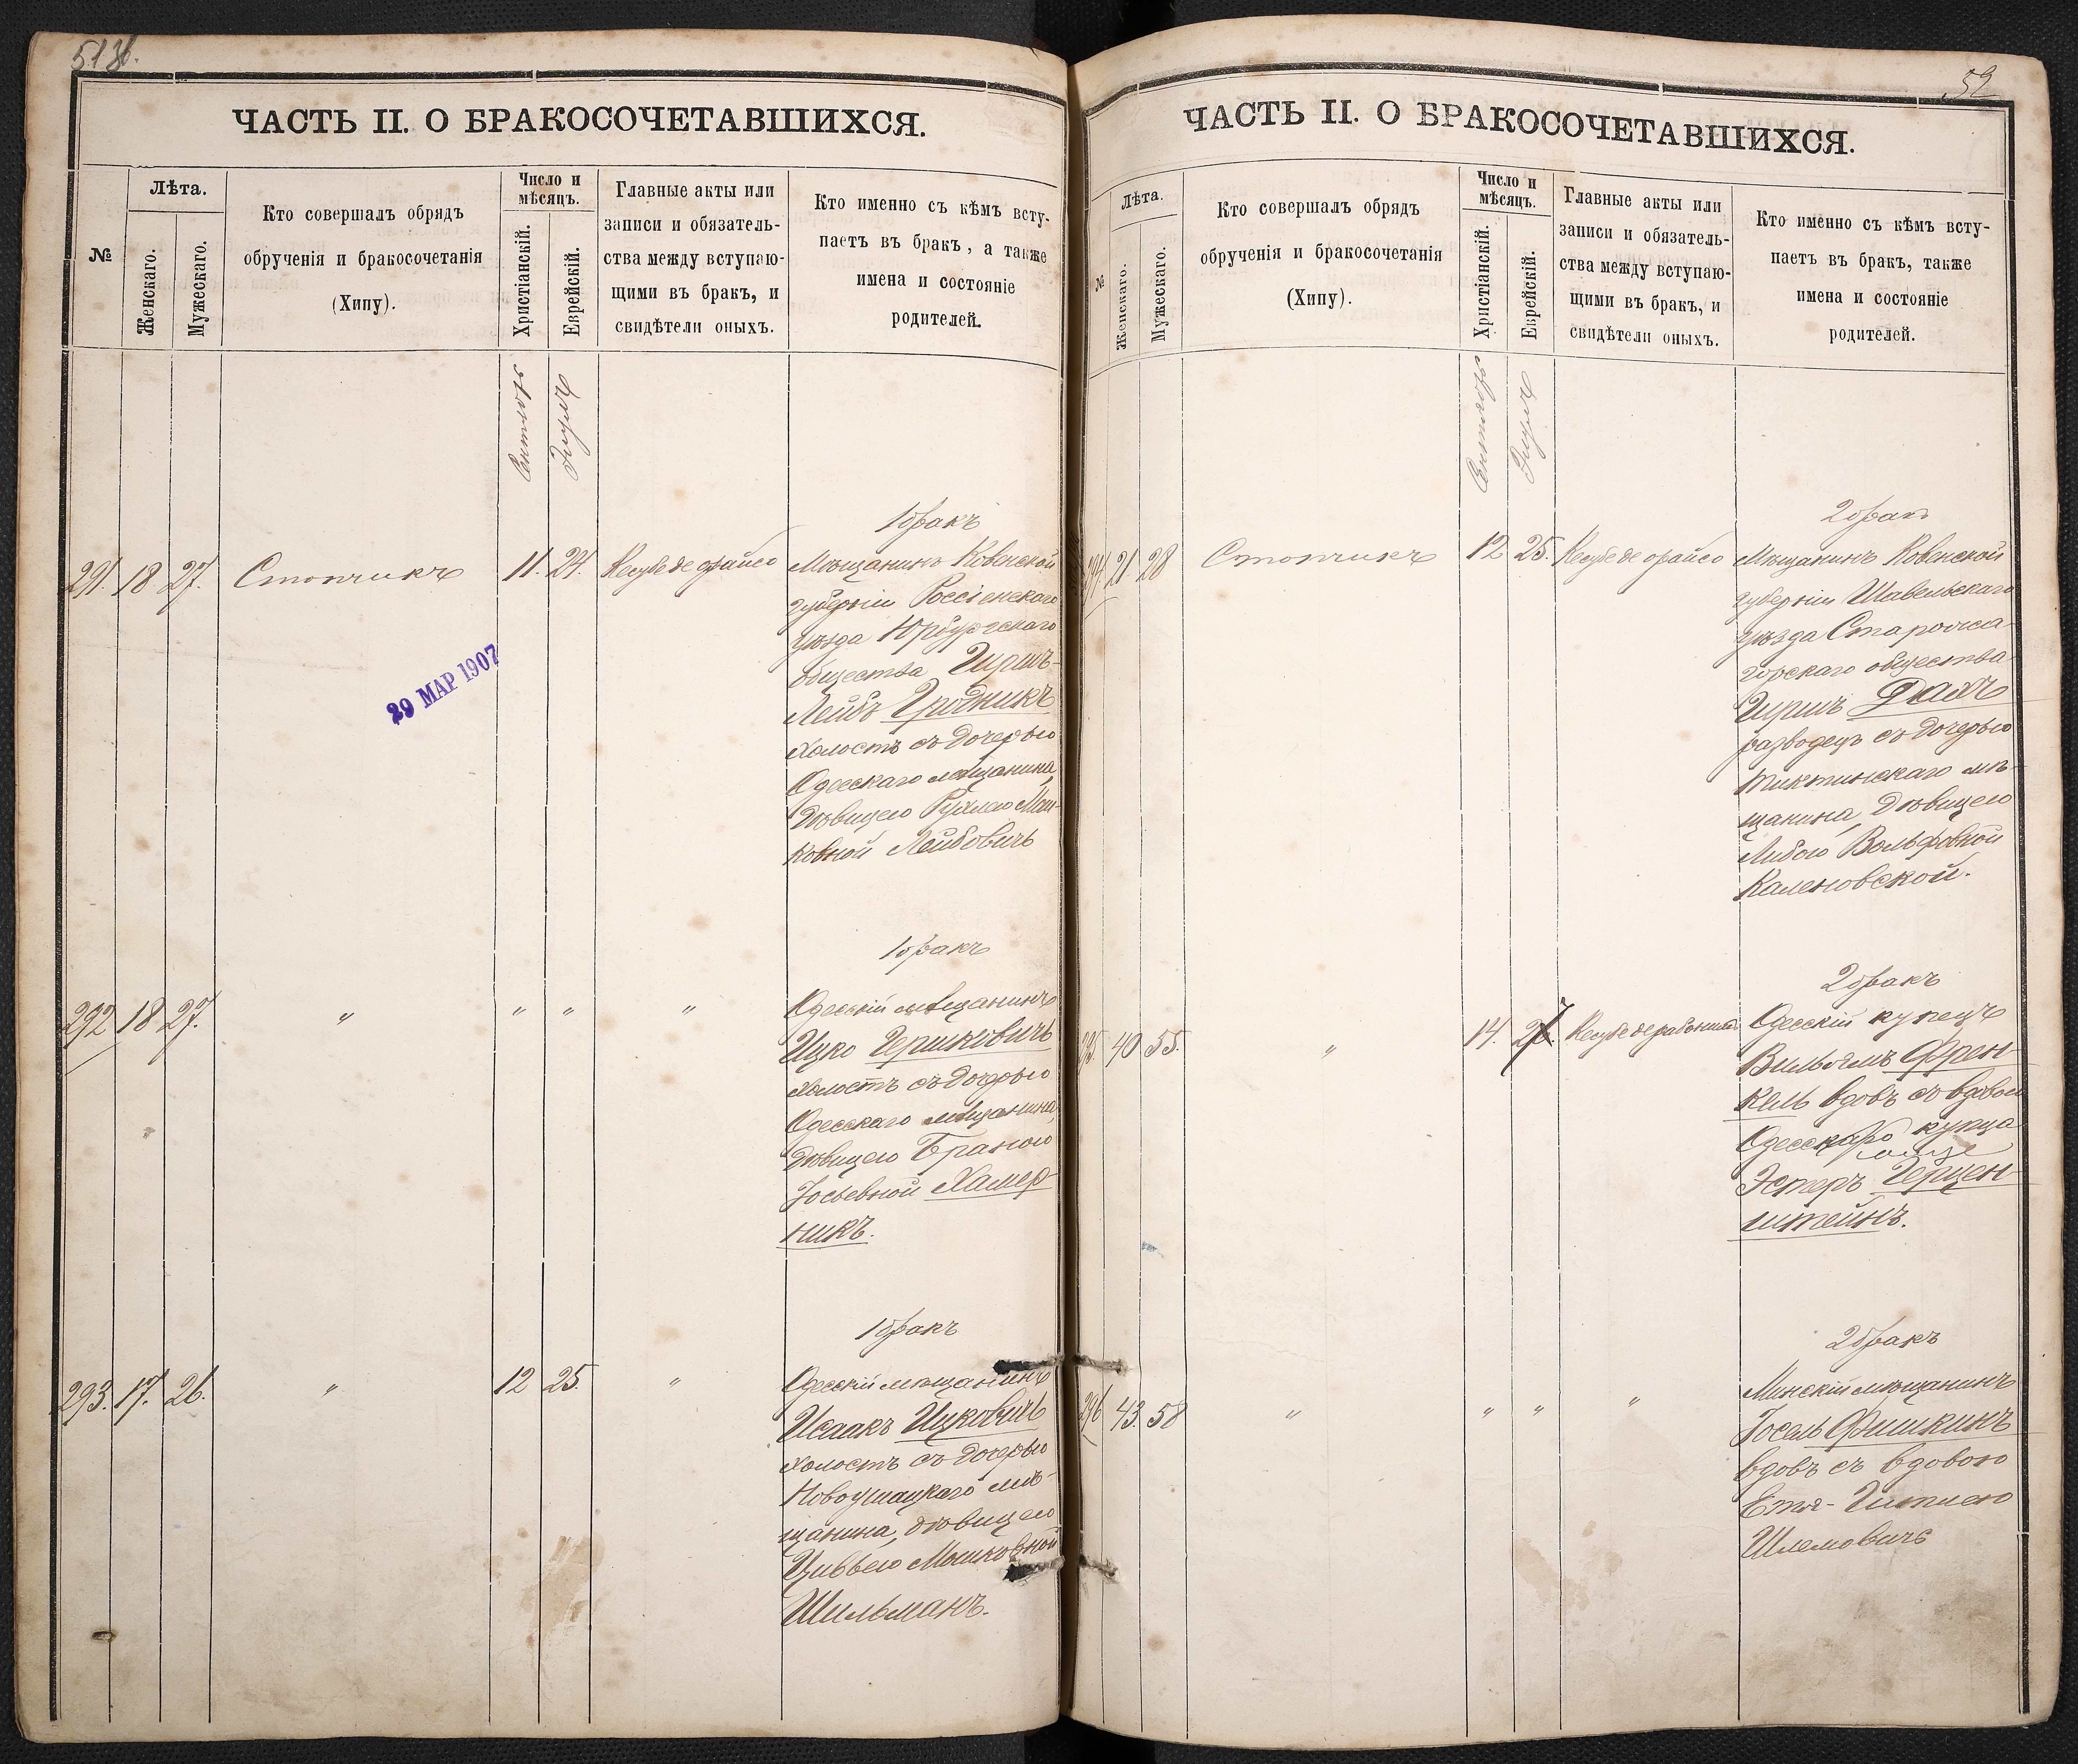 ЧАСТЬ II. О БРАКОСОЧЕТАВШИХСЯ.
№
Лѣта.
Женскаго.
Мужескаго.
Кто совершалъ обрядъ
обрученія и бракосочетанія
(Хипу).
Число и
мѣсяцъ.
Христіанскій.
Еврейскій.
Главные акты или
записи и обязатель-
ства между вступаю-
щими въ бракъ, и
свидѣтели оныхъ.
Кто именно съ кѣмъ всту-
паетъ въ бракъ, а также
имена и состояніе
родителей.
Сентябрь
1 бракъ
291. 18 27. Стопчикъ 11. 24. Кесубе де орайсо Мѣщанинъ Ковенской
губерніи Россіенскаго
уѣзда Юрбургскаго
общества Гиршъ-
Лейбъ Гродникъ
холостъ съ дочерью
Одесскаго мѣщанина,
дѣвицею Рухлею Мен-
ковной Лейбовичъ
29 МАР 1907
1 бракъ
292 18 27. " " " " Одесскій мѣщанинъ
Ицко Гершковичъ
холостъ съ дочерью
Одесскаго мѣщанина,
дѣвицею Браною
Іосьевной Хамер-
никъ.
1 бракъ
293. 17. 26. " 12 25. " Одесскій мѣщанинъ
Исаакъ Ицковичъ
холостъ съ дочерью
Новоушицкаго мѣ-
щанина, дѣвицею
Цивьею Мошковной
Шильманъ.
52
ЧАСТЬ II. О БРАКОСОЧЕТАВШИХСЯ.
№
Лѣта.
Женскаго.
Мужескаго.
Кто совершалъ обрядъ
обрученія и бракосочетанія
(Хипу).
Число и
мѣсяцъ.
Христіанскій.
Еврейскій.
Главные акты или
записи и обязатель-
ства между вступаю-
щими въ бракъ, и
свидѣтели оныхъ.
Кто именно съ кѣмъ всту-
паетъ въ бракъ, также
имена и состояніе
родителей.
Сентябрь
2 бракъ
294 21 28 Стопчикъ 12 25. Кесубе де орайсо Мѣщанинъ Ковенской
губерніи Шавельскаго
уѣзда Старожа-
горскаго общества
Гиршъ
разводецъ съ дочерью
тиктинскаго мѣ-
щанина, дѣвицею
Либою Вольфовной
Каленовской.
2 бракъ
295. 40 55. " 14. 27 Кесубе де рабонимъ Одесскій купецъ
Вильгямъ Френ-
кель вдовъ съ вдовой
Одесскаго купца
Эстеръ Герцен-
штейнъ.
2 бракъ
296 43. 58 " " " " Минскій мѣщанинъ
Іосель Фишкинъ
вдовъ съ вдовою
Етя-Гитлею
Шлемовичъ